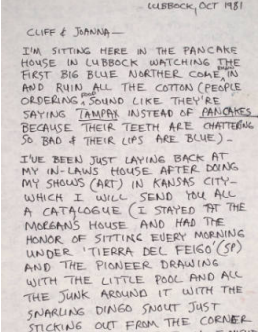 LUBBOCK, OCT 1981
CLIFF & JOANNA—
I'M SITTING HERE IN THE PANCAKE
HOUSE IN LUBBOCK WATCHING THE
FIRST BIG BLUE NORTHER COME IN
AND RUIN ALL THE COTTON (PEOPLE
ORDERING SOUND LIKE THEY'RE
SAYING TAMPAX INSTEAD OF PANCAKES
BECAUSE THEIR TEETH ARE CHATTERING
SO BAD & THEIR LIPS ARE BLUE)—
I'VE BEEN JUST LAYING BACK AT
MY IN-LAWS HOUSE AFTER DOING
MY SHOWS (ART) IN KANSAS CITY—
WHICH I WILL SEND YOU ALL
A CATALOGUE (I STAYED AT THE
MORGAN'S HOUSE AND HAD THE
HONOR OF SITTING EVERY MORNING
UNDER 'TIERRA DEL FEIGO' (SP)
AND THE PIONEER DRAWING
WITH THE LITTLE POOL AND ALL
THE JUNK AROUND IT WITH THE
SNARLING DINGO SNOUT JUST
STICKING OUT FROM THE CORNER